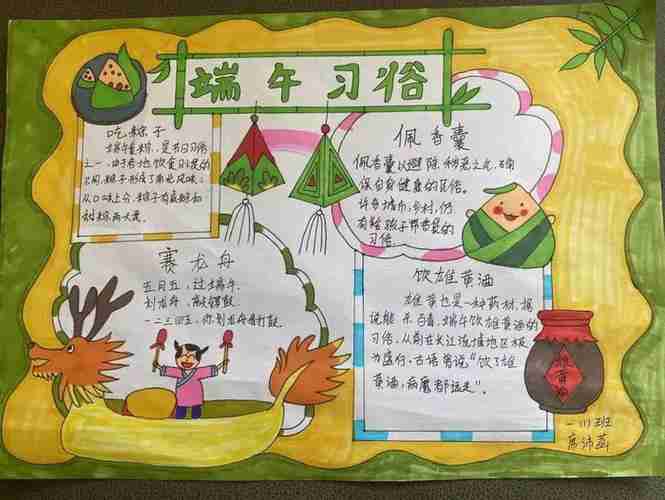 端午习俗
吃粽子
端午食粽,是节日习俗
之一,由于各地饮食习惯的
不同,粽子形成了南北风味;
从口味上分,粽子有咸粽和
甜粽两大类。
佩香囊
佩香囊以避除秽恶之气,确
保自身健康的习俗。
许多城市,乡村,仍
有给孩子带香囊的
习俗
赛龙舟
五月五,过端午。
划龙舟,敲锣鼓
一二三四五,你划龙舟我打鼓
饮雄黄酒
雄黄也是一种药材,据
说能杀百毒,端午饮雄黄酒的
习俗,从前在长江流域地区极
为盛行。古语曾说“饮了雄
黄酒,病魔都远走”。
雄黄酒
一(1)班